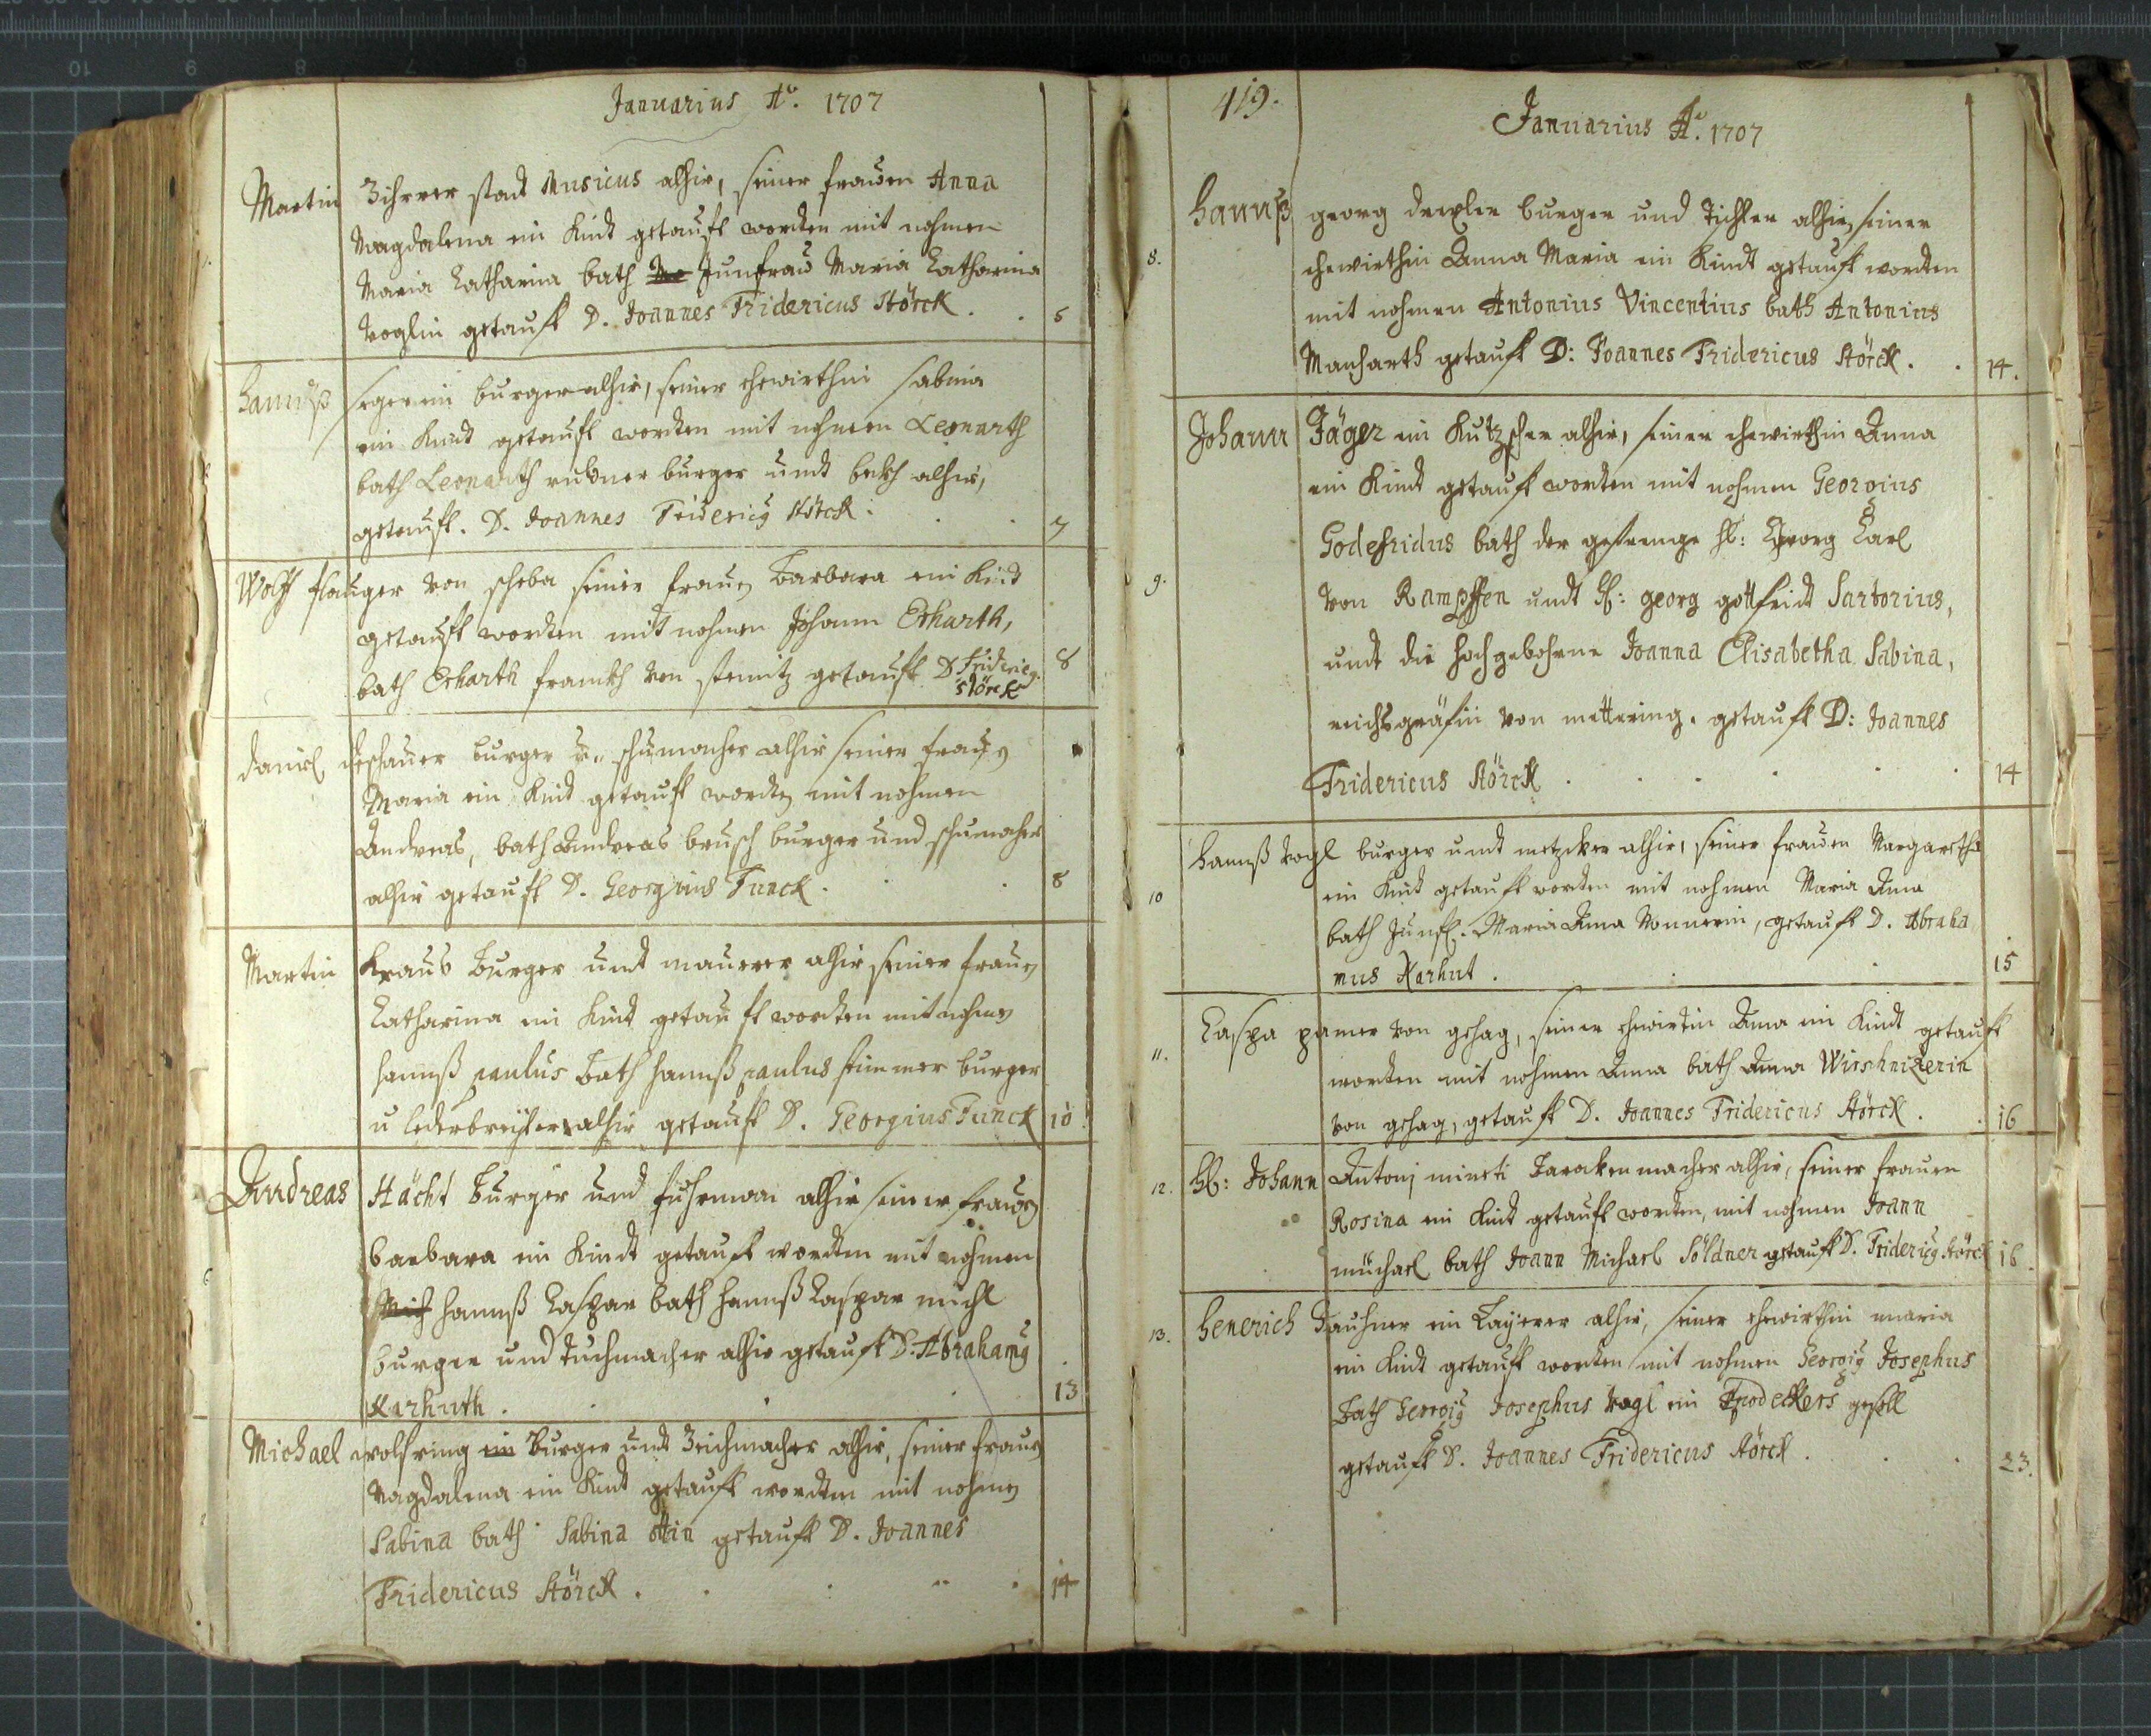 Januarius Ao. 1707
Martin Zihrer stad Musicus alhir, seiner frauen Anna
Magdalena ein Kindt getaufft worden mit nahmen
Maria Catharina bath Junfrau Maria Catharina
Voglin getaufft D. Joannes Fridericus Störck . . 6
Hannß ein burger alhir, seiner ehewirthin Sabina
ein Kindt getaufft worden mit nahmen Leonarth
bath Leonarth burger undt bekh alhir,
getaufft. D. Joannes Fridericg Störck . . 7
Wolff von seiner frauen Barbara ein Kindt
getaufft worden mit nahmen Johann Erharth,
bath Erharth frankh von getaufft D Fridericg. Störck 8
Daniel burger u. schumacher alhir seiner frauen
Maria ein Kindt getaufft worden mit nahmen
Andreas, bath Andreas burger und schumacher
alhir getaufft D. Georgius Funck . . 8
Martin Kraus Burger undt maurer alhir seiner frauen
Catharina ein Kindt getaufft worden mit nahmen
hannß paulus Bath hannß paulus burger
u alhir getaufft D. Georgius Funck 10
Andreas Hächt Burger und fuhrman alhir seiner frauen
barbara ein Kindt getaufft worden mit nahmen
Mich hannß Caspar bath hannß Caspar michl
burger und tuchmacher alhir getaufft D. Abrahamg
Karhuth . . . 13
Michael wolfring ein Burger undt Zeichmacher alhir, seiner frauen
Magdalena ein Kindt getaufft worden mit nahmen
Sabina bath Sabina ottin getaufft D. Joannes
Fridericus Störck . . . 14
419.
Januarius Ao. 1707
8. Hannß georg drexler burger und Tischler alhir, seiner
ehewirthin Anna Maria ein Kindt getaufft worden
mit nahmen Antonius Vincentius bath Antonius
Manharth getaufft D: Joannes Fridericus Störck . . 14.
9. Johann Jäger ein Kutzscher alhir, seiner ehewirthin Anna
ein Kindt getaufft worden mit nahmen Georgius
Godefridus bath der gestrenge H: Georg Carl
von Rampffen undt H: georg gottfridt Sartorius,
undt die hochgebohrne Joanna Elisabetha Sabina,
reichsgräfin von metternig. getaufft D: Joannes
Fridericus Störck . . . 14
10 hannß Vogl burger undt metzcker alhir, seiner frauen Margaretha
ein Kindt getaufft worden mit nahmen Maria Anna
bath Junfr. Maria Anna getaufft D. Abraha
mus Karhut . . . 15
11. Caspa von gehag, seiner ehewirtin Anna ein Kindt getaufft
worden mit nahmen Anna bath Anna Wirschnizerin
von gehag, getaufft D. Joannes Fridericus Störck . . 16
12. H: Johann Antonj mineti alhir, seiner frauen
Rosina ein Kindt getaufft worden, mit nahmen Joann
michael bath Joann Michael Söldner getaufft D. Fridericg Störck 16
13. Henerich ein alhir, seiner ehewirthin maria
ein Kindt getaufft worden mit nahmen Georgig Josephus
Bath Georgig Josephus Vogl ein gesell
getaufft D. Joannes Fridericus Störck . . 23.